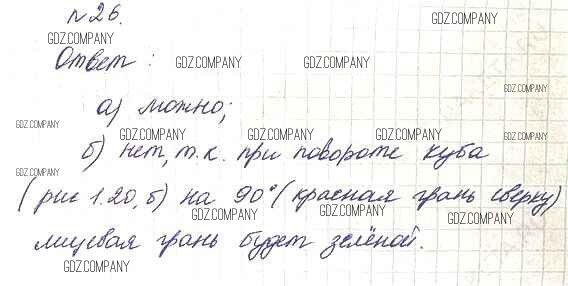 №26.
GDZ.COMPANY
GDZ.COMPANY
Ответ:
GDZ.COMPANY
GDZ.COMPANY
GDZ.COMPANY
а) можно;
GDZ.COMPANY
GDZ.COMPANY
GDZ.COMPANY
GDZ.COMPANY
б) нет, т.к. при повороте куба
GDZ.COMPANY
(рис 1.20, б) на 90° (красная грань сверху)
GDZ.COMPANY
GDZ.COMPANY
GDZ.COMPANY
лицевая грань будет зелёной.
GDZ.COMPANY